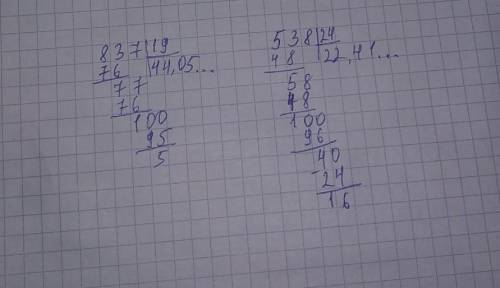 837|19
76 |44,05...
77
76
100
95
5
538|24
48 |22,41...
58
48
100
96
40
24
16